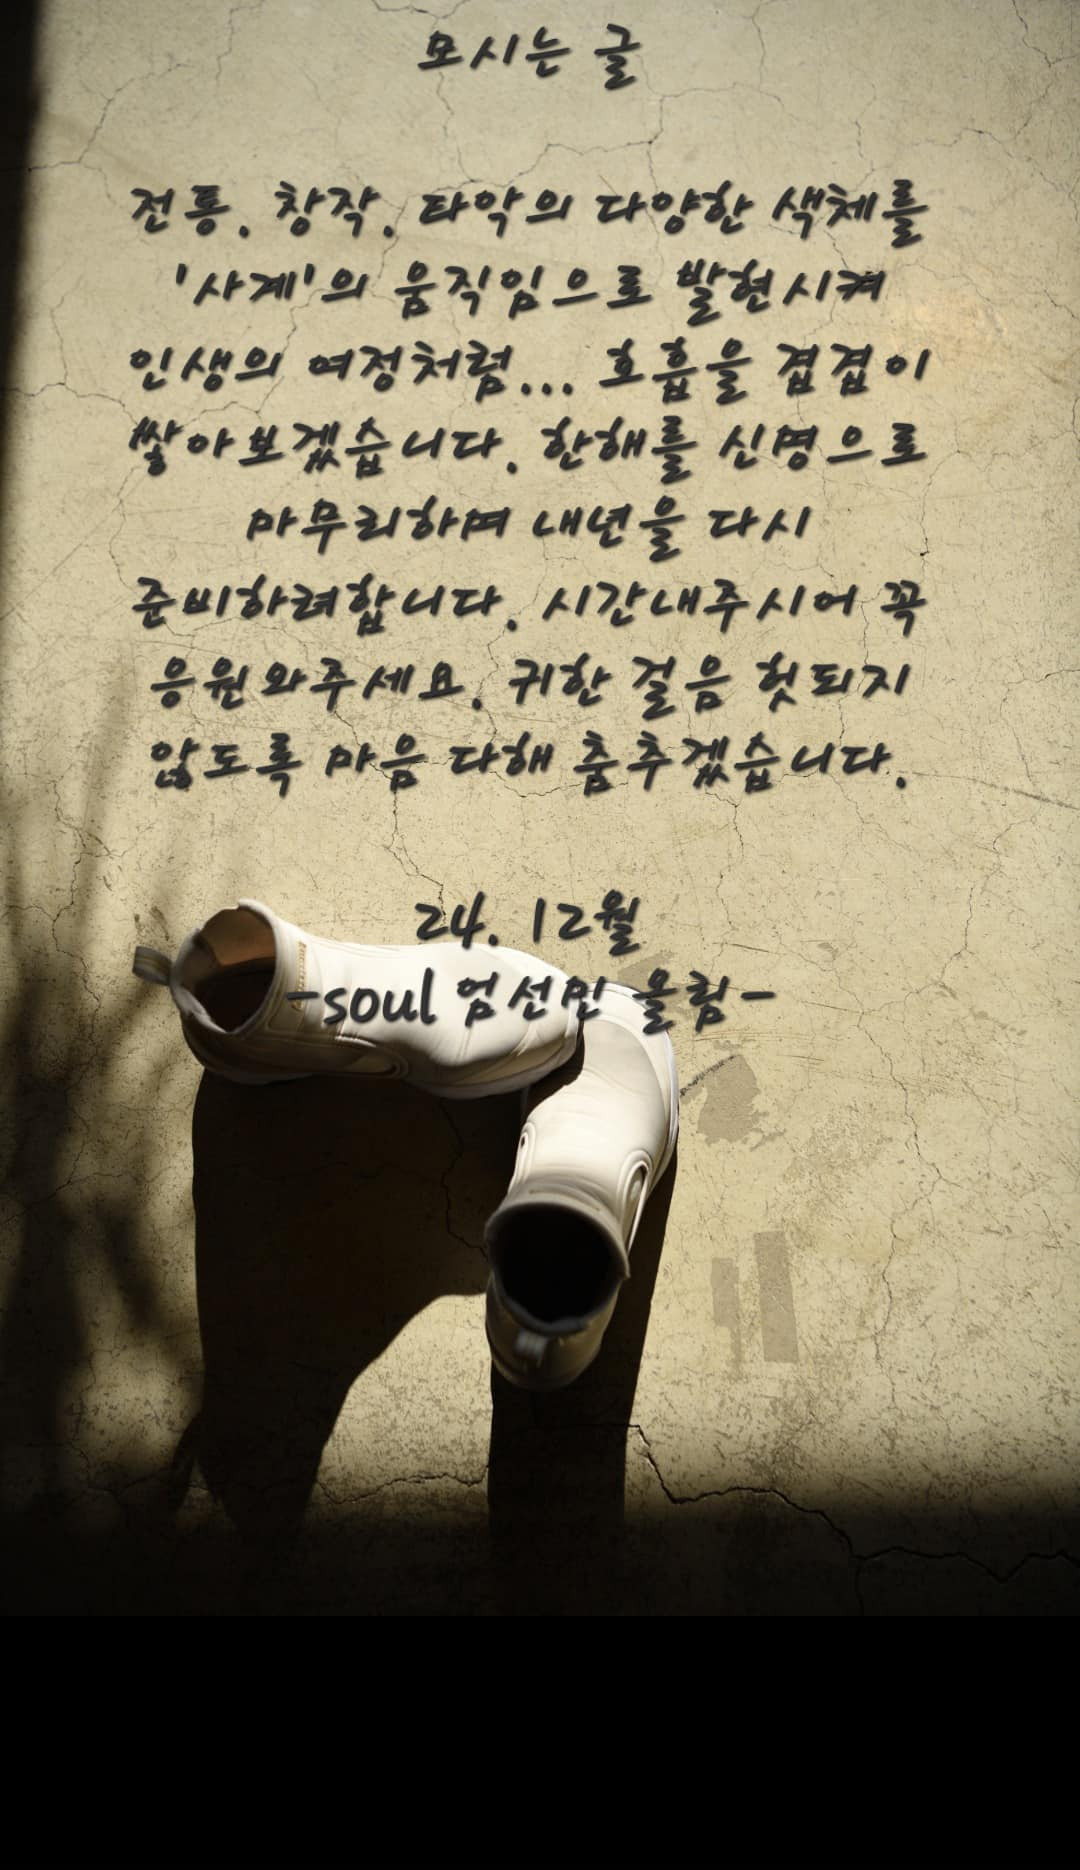 모시는 글
전통. 창작. 타악의 다양한 색체를
'사계'의 움직임으로 발현시켜
인생의 여정처럼... 호흡을 겹겹이
쌓아보겠습니다. 한해를 신명으로
마무리하며 내년을 다시
준비하려합니다. 시간내주시어 꼭
응원와주세요. 귀한 걸음 헛되지
않도록 마음 다해 춤추겠습니다.
24. 12월
-soul 엄선민 올림-